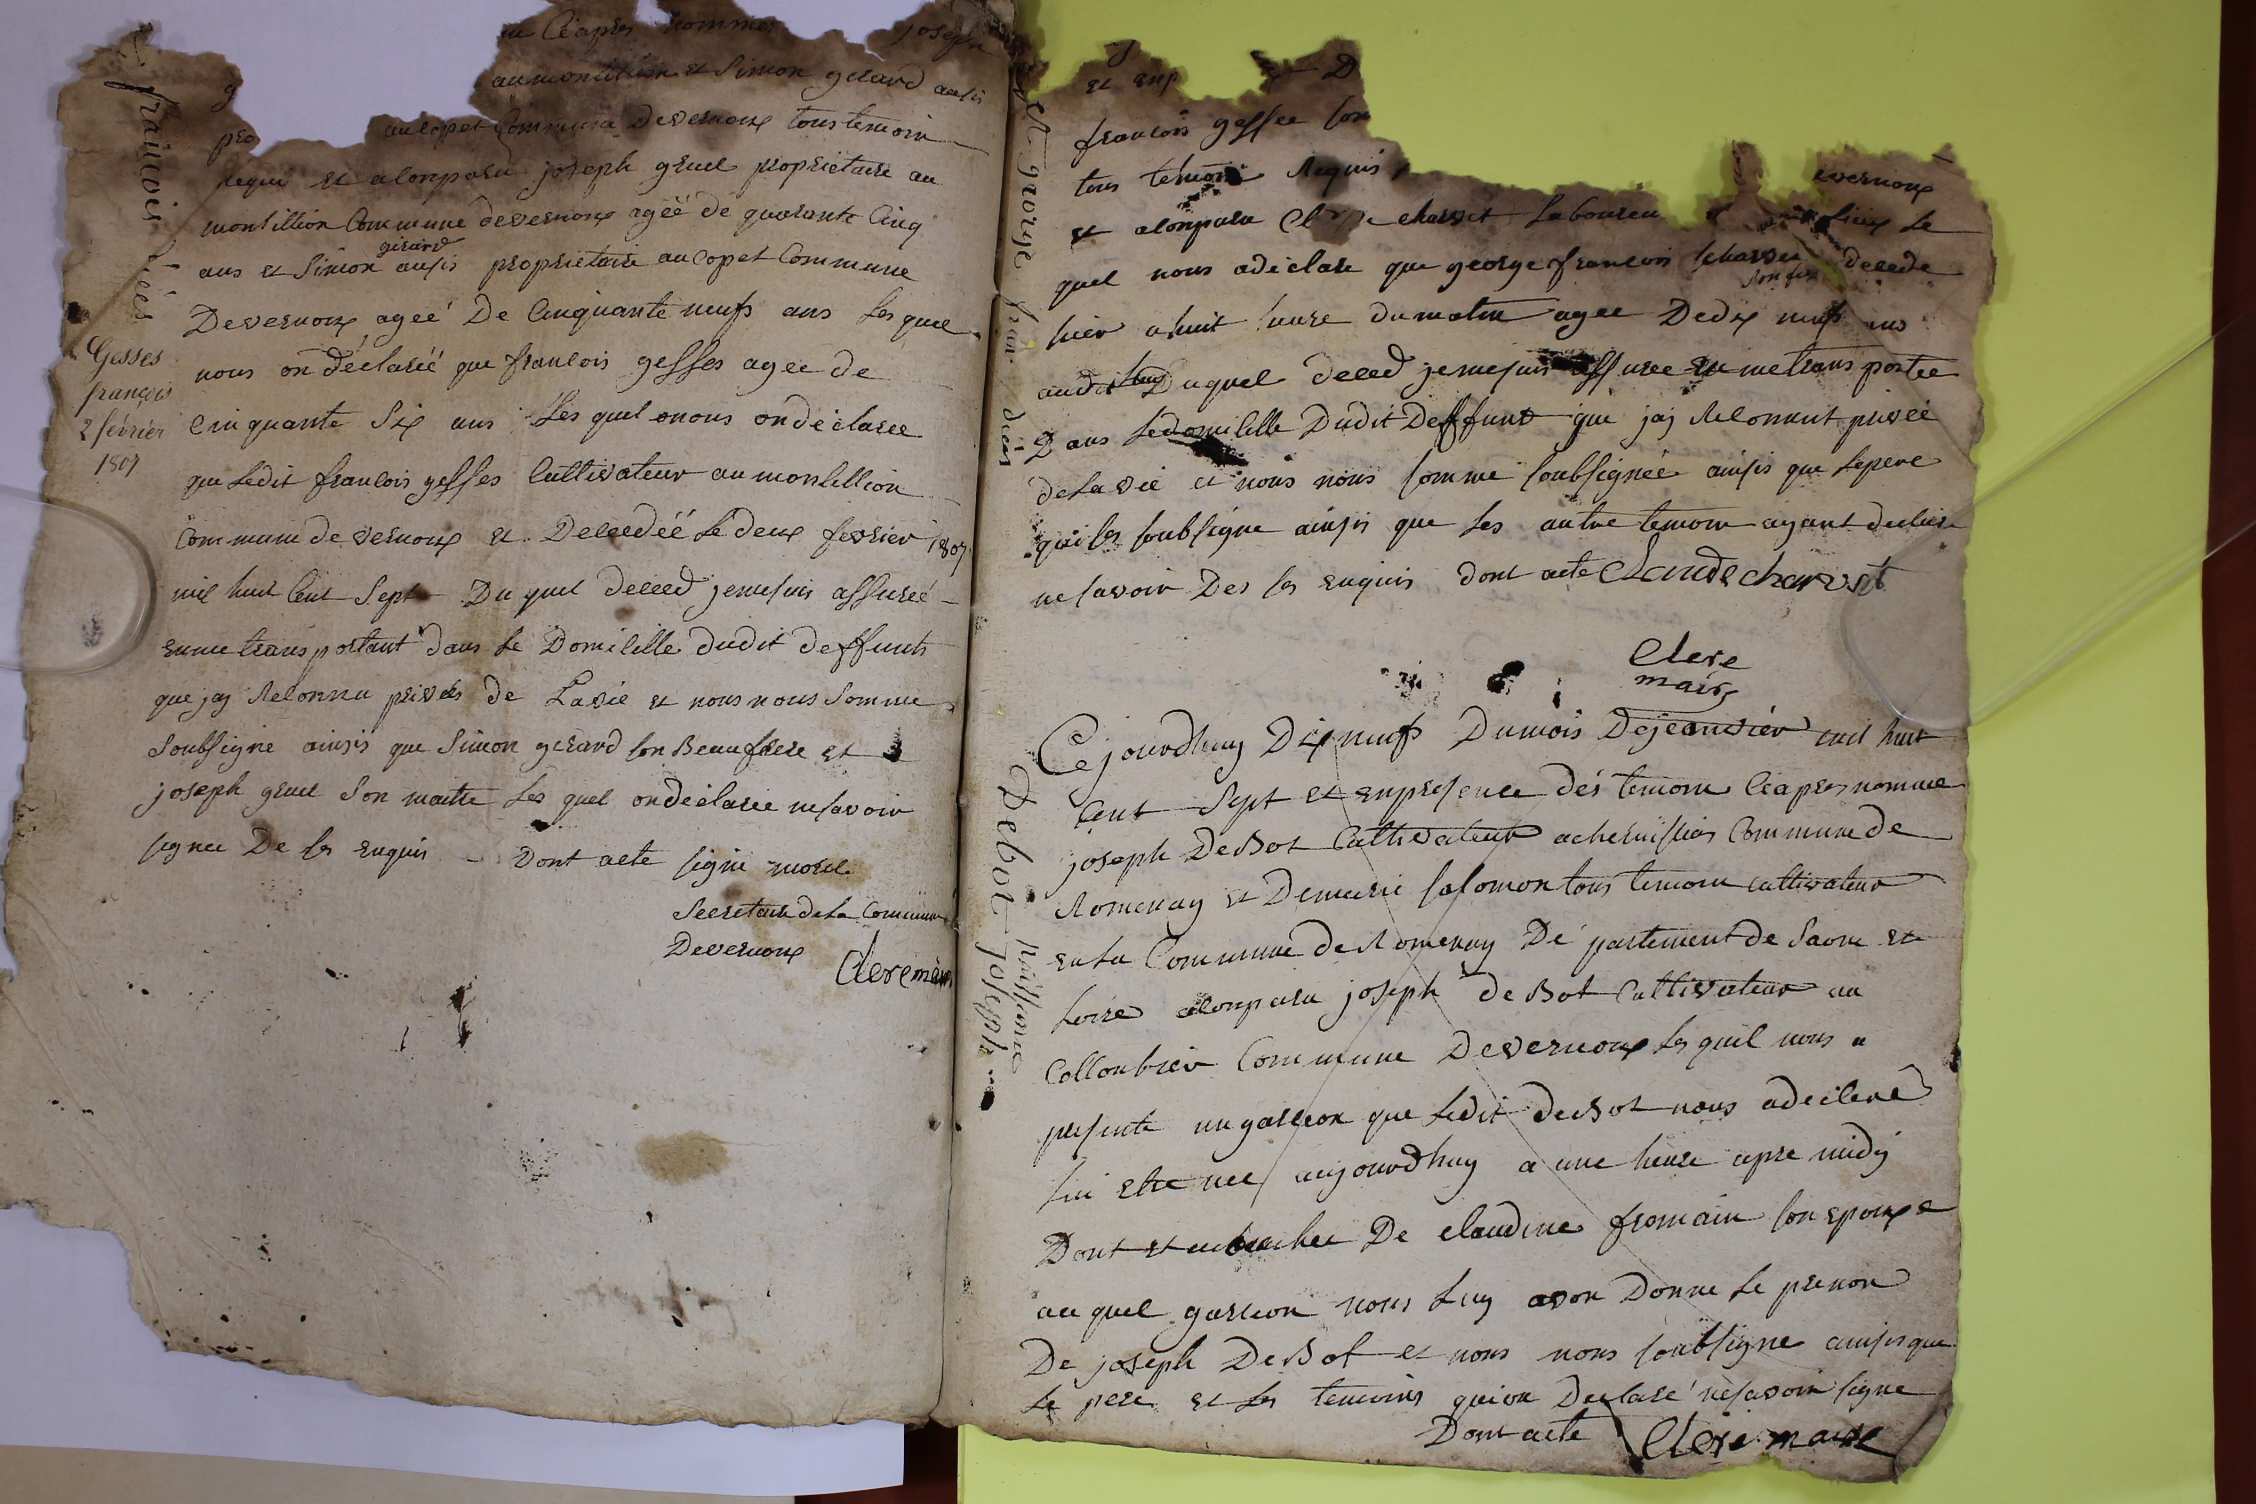 Ciapres nommes joseph
aumontillion et Simon gerard ausis
pro au Copet Commune Devernoux tous temoin
requi et a Conparu joseph gruel proprietaire au
montillion Commune devernoux ageé de quarante Cinq
ans et Simon gerard ausis proprietaire au Copet Commune
Devernoux ageé De Cinquante neufs ans Les quel
nous on déclareé que francois gesses ageé de
Cinquante Six ans Les quel onous on déclaree
que Ledit francois gesses Cultivateur au montillion
Commune de vernoux et Decedéé Le deux fevrier 1807
mil huit Cent Sept Du quel deced jemesuis assureé
enme transportant dans Le Domicille dudit deffunts
que jay Reconnu privés de Lavie et nous nous Somme
Soubsigne ainsis que Simon gerard son Beaufrere et
joseph gruel Son maitre Les quel on déclaree nesavoir
signee De Ce enquis Dont acte signe morel
Secretaire de La Commune
Devernoux
Clere maire
francois décés
Gesses
françois
2 février
1807
et enp D
francois gesses son
tous temoin Requis evernoux
et a Conparu charvet Laboureu Le
quel nous adéclare que george francois charvet son fis decede
hier a huit heure du matin agee Dedix neufs ans
audit Duquel deced jemesuis assuree en metrans portee
Dans Ledomicille Dudit Deffunt que jay Reconnut priveé
deLavie et nous nous somme soubsigneé ainsis que Lepere
qui Ces soubsigne ainsis que Les autre temoin ayant declere
nesavoir De Ce enquis dont acte Claude charvet
Clere
maire
george décés
Ce jourdhuy Dix neufs Dumois Dejeanvier mil huit
Cent Sept et enpresence dés temoin Ciapres nomme
joseph DeBot Cultivateur Commune de
Romenay et Demurie salomon tous temoin cultivateur
enLa Commune de Romenay Dé partement de Saone et
Loire aConparu joseph deBot Cultivateur au
Collonbier Commune Devernoux Le quil nous a
presente un garceon que Ledit deBot nous adécleré
lui etre nee aujourdhuy a une heure apre midy
Dont et acouchee De claudine fromain son epouxe
au quel garceon nous Luy avon Donne Le prenon
De joseph DeBot et nous nous soubsigne ainsis que
Le pere et Les temoins qui on Declaré nésavoir signe
Dont acte Clere maire
Debot joseph
naissance